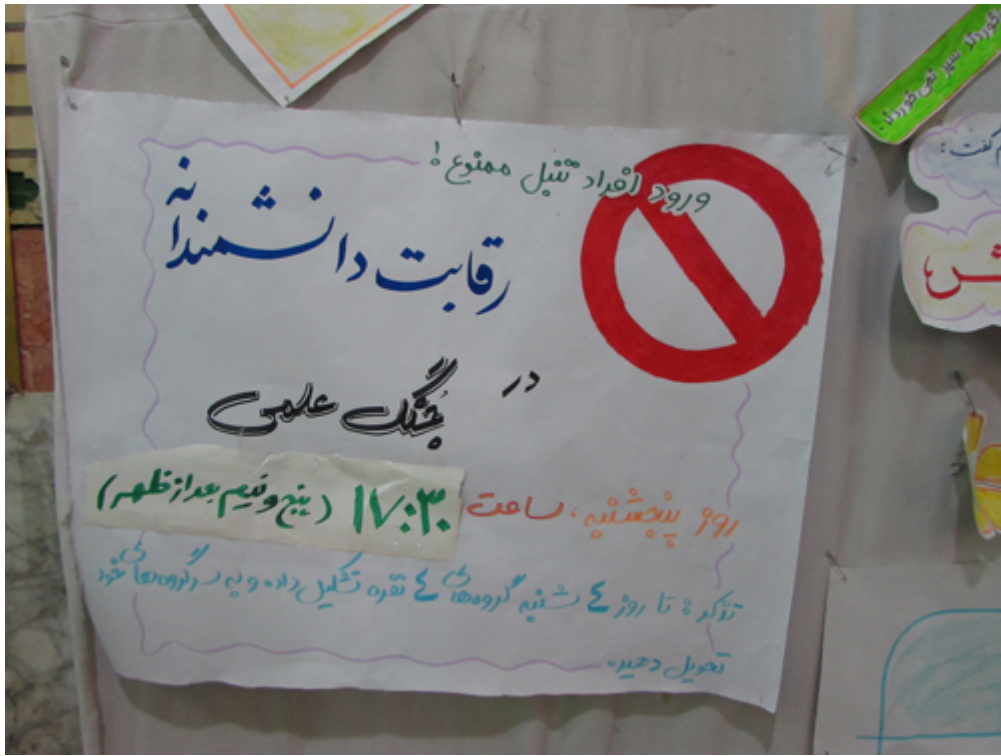 ورود افراد تنبل ممنوع!
رقابت دانشمندانه
در
جُنگ علمی
روز پنجشنبه، ساعت ۱۷:۳۰ (پنج و نیم بعد از ظهر)
تذکر: تا روز ٤ شنبه گروه‌های ٤ نفره تشکیل داده و به سرگروه‌های خود
تحویل دهید.
خورد، سیر نمی خورد.
م گفت: